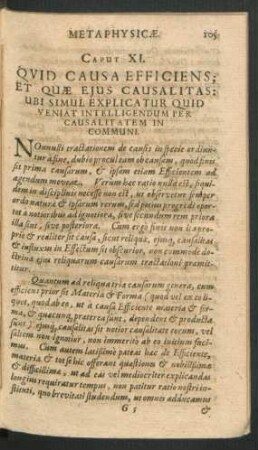 METAPHYSICÆ. 105
CAPUT XI.
QVID CAUSA EFFICIENS;
ET QUÆ EJUS CAUSALITAS:
UBI SIMUL EXPLICATUR QUID
VENIAT INTELLIGENDUM PER
CAUSALITATEM IN
COMMUNI.
NOnnulli tractationem de causis instituere ordiun-
tur à fine, dubio procul eam ob causam, quod finis
sit prima causarum, & ipsam etiam Efficientem ad
agendum moveat. Verùm hæc ratio nulla est, siqui-
dem in disciplinis necesse non est, ut observetur semper
ordo naturæ & ipsarum rerum, sed potius progredi opor-
tet à notioribus ad ignotiora, sive secundùm rem priora
illa sint, sive posteriora. Cum ergo finis non ita pro-
priè & realiter sit causa, sicut reliqua, ejusq; causalitas
& influxus in Effectum sit obscurior, non commodè do-
ctrina ejus reliquarum causarum tractationi præmit-
titur.
Quantum ad reliqua tria causarum genera, cum
efficiens prior sit Materiâ & Formâ, quod vel ex eo li-
quet, quod ab eo, ut à causâ Efficiente materia & for-
ma, & quæcunq; præterea sunt, dependent & producta
sunt; ejusq; causalitas sit notior causalitate eorum, vel
saltem non ignotior, non immeritò ab eo initium suci-
mus. Cum autem latissimè pateat hæc de Efficiente,
materia & tot se hic offerant quæstiones & nobilissimæ
& difficillimæ, ut ad eas vel mediocriter explicandas
longum requiratur tempus, non patitur ratio nostri in-
stituti, quo brevitati studendum, ut omnes adducamus
G 5 &